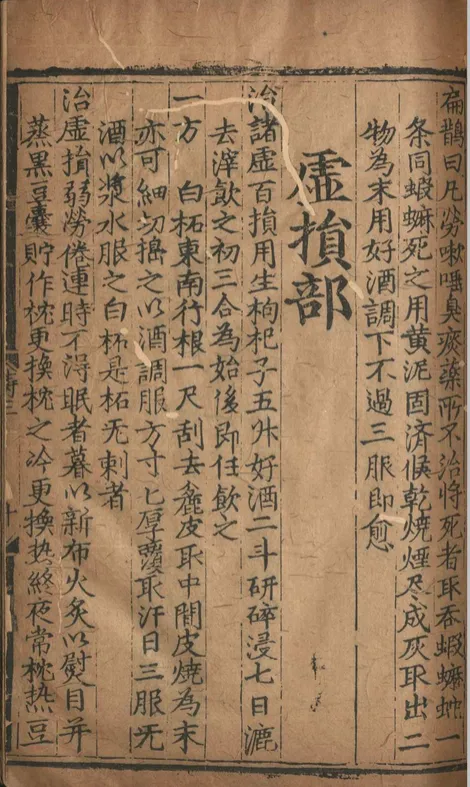 扁鵲曰凡勞嗽唾臭痰藥所不治將死者取吞蝦蟆蛇一
条同蝦蟆死之用黄泥固済候乾燒煙尽成灰取出二
物為末用好酒調下不過三服即愈
虚損部
治諸虚百損用生枸杞子五升好酒二斗研碎浸七日漉
去滓飲之初三合為始後即任飲之
一方 白柘東南行根一尺刮去麁皮取中間皮燒為末
亦可細切擣之以酒調服方寸匕厚覆取汗日三服无
酒以漿水服之白柘是柘无刺者
治虚損弱勞倦連時不得眠者暮以新布火炙以熨目并
蒸黒豆囊貯作枕更換枕之冷更換热終夜常枕热豆